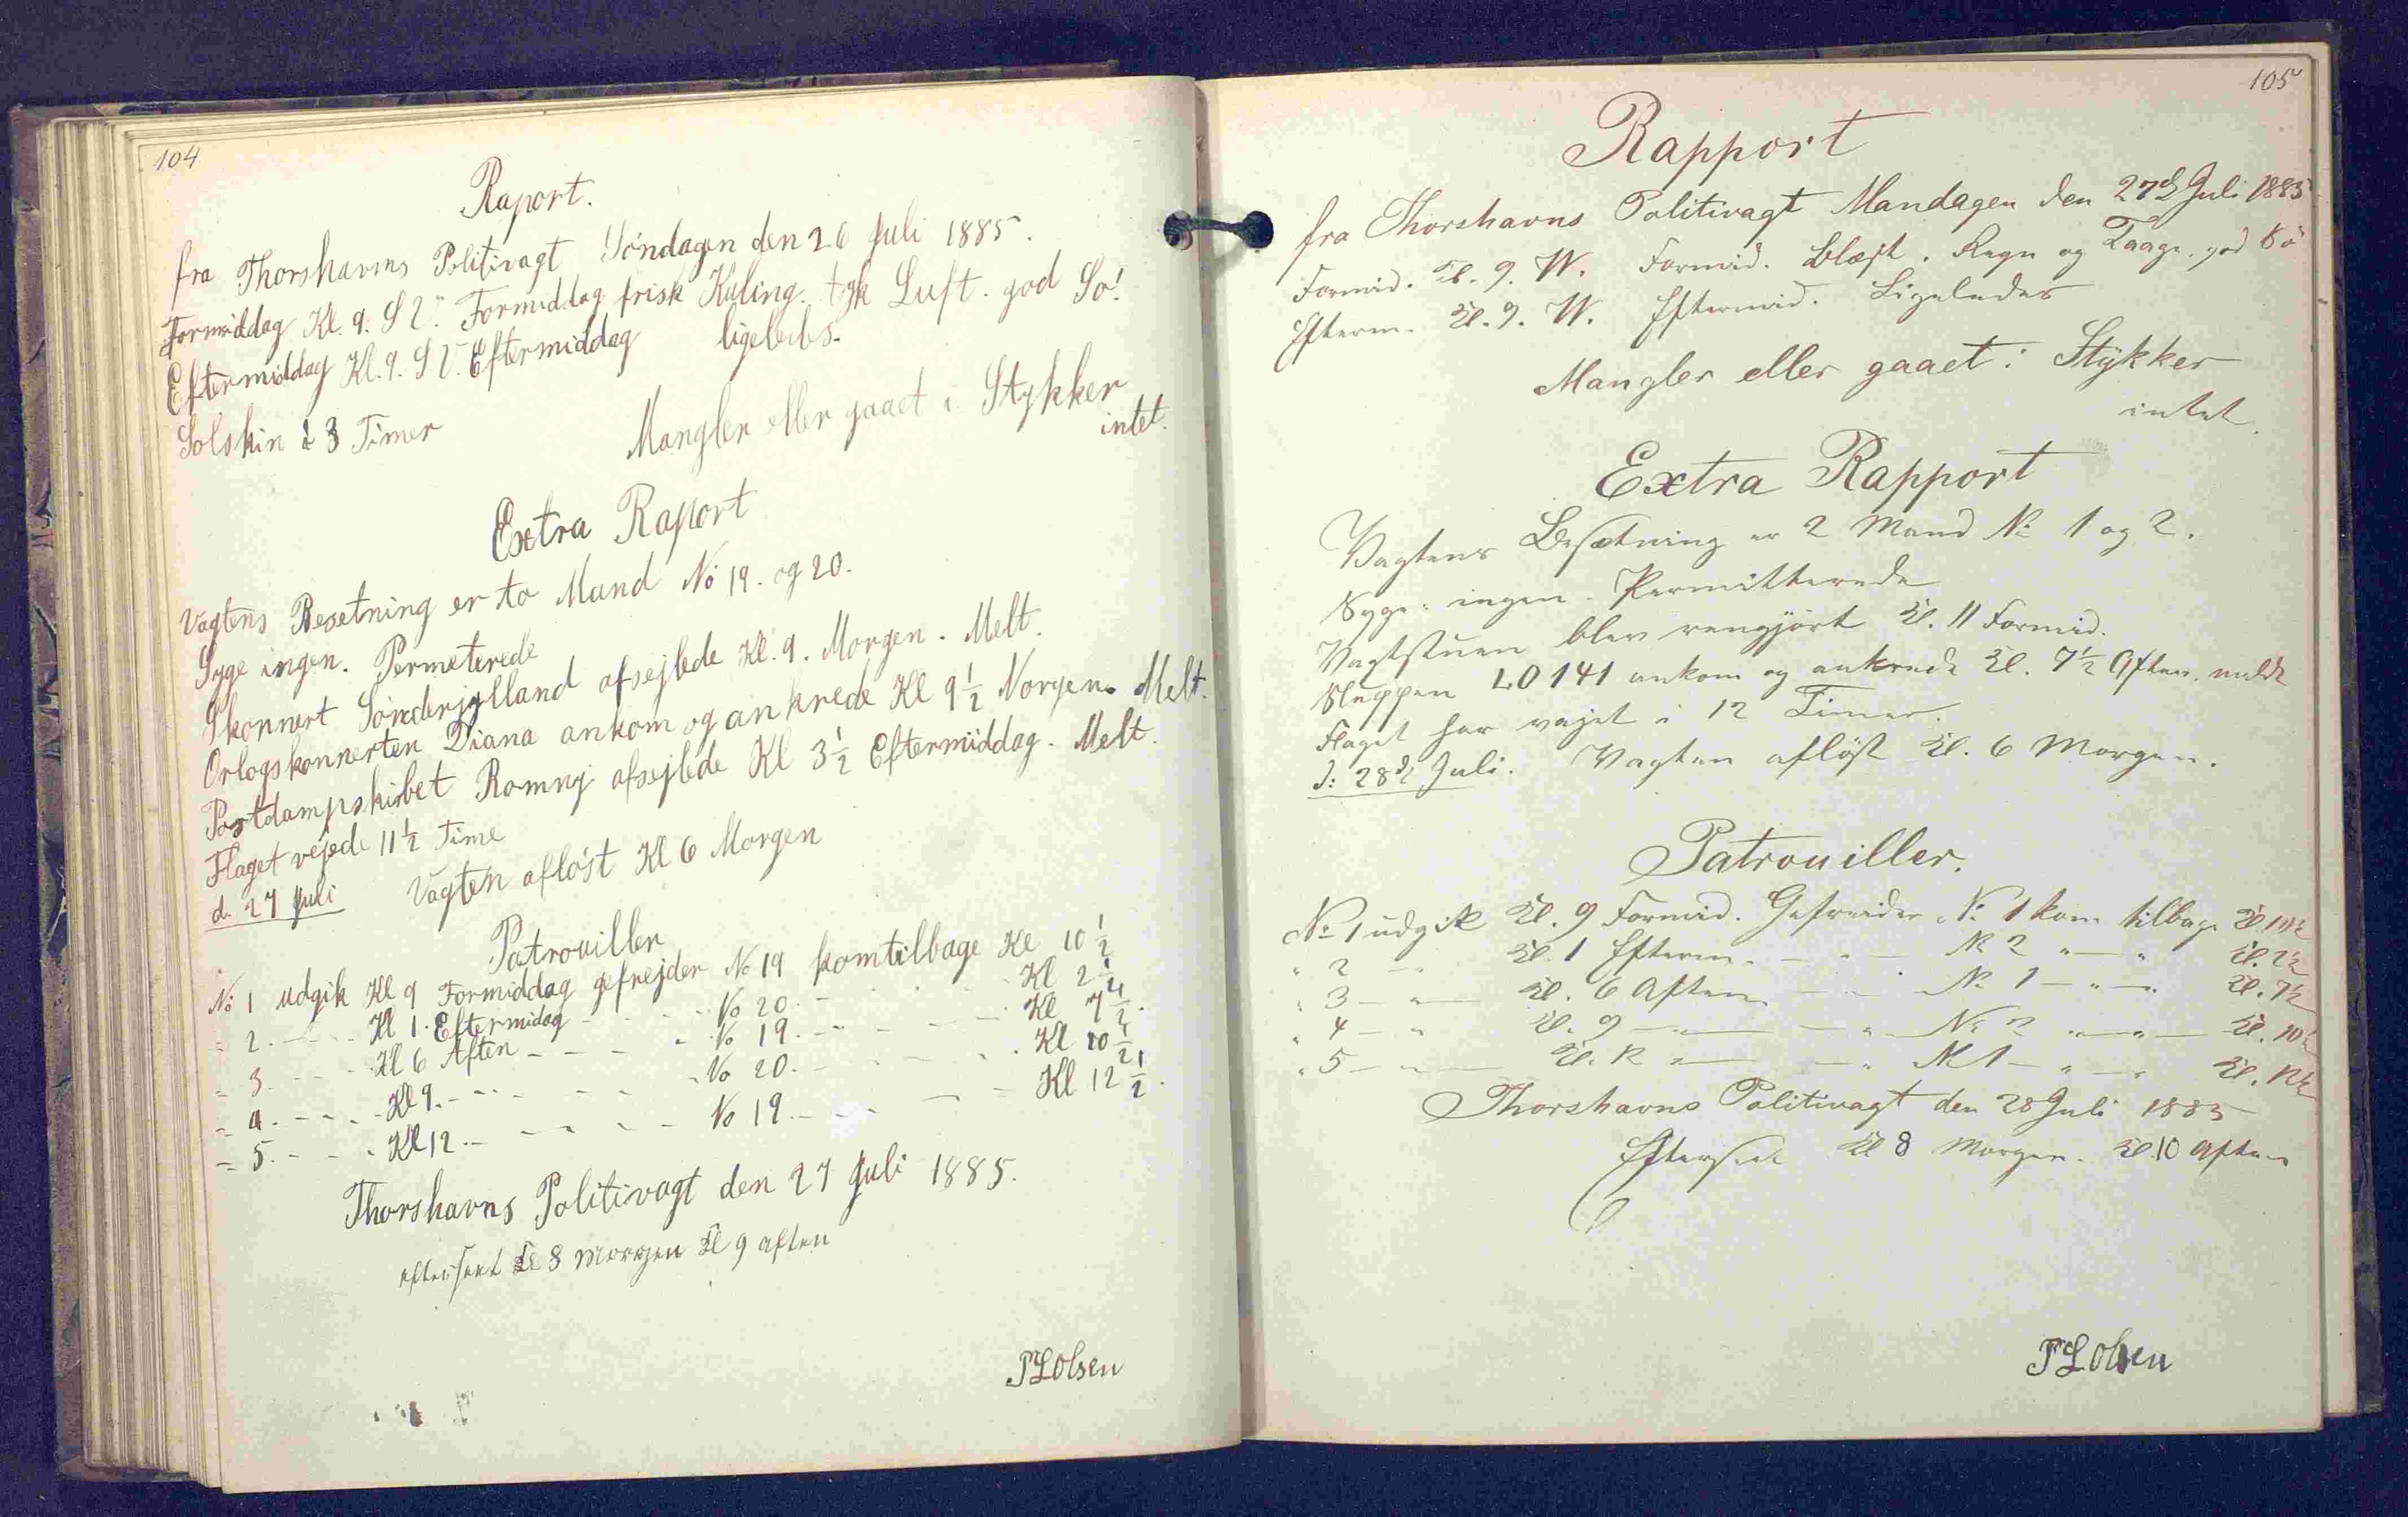 104
Raport.
fra Thorshavns Politivagt Söndagen den 26 Juli 1885.
Formiddag Kl. 9. S Formiddag frisk Kuling. tyk Luft. god Sö!
Eftermiddag Kl. 9. S Eftermiddag ligeledes.
Solskin i 3 Timer
Mangler eller gaaet i Stykker
intet.
Extra Raport
Vagtens Besetning er to Mand No 19. og 20.
Syge ingen. Permeterede
Skonnert Sönderjylland afsejlede Kl. 9. Morgen. Melt.
Orlogskonnerten Diana ankom og ankrede Kl 9 1/2 Morgen. Melt.
Postdampskibet Romny afsejlede Kl 3 1/2 Eftermiddag. Melt.
Flaget vejede 11 1/2 Time
d. 27 Juli Vagten aflöst Kl 6 Morgen
Patrouiller
No 1 udgik Kl 9 Formiddag gefrejder No 19 kom tilbage Kl 10 1/2
- 2. - - - Kl 1. Eftermidag - - - - No 20. - - - - Kl 2 1/2
- 3. - - - Kl 6 Aften - - - - No 19. - - - - Kl 7 1/2.
- 4. - - - Kl 9. - - - - No 20. - - - - Kl 10 1/2
- 5. - - - Kl 12. - - - - No 19. - - - - Kl 12 1/2.
Thorshavns Politivagt den 27 Juli 1885.
efterseet Kl 8 Morgen Kl 9 aften
PLOlsen
105
Rapport
fra Thorshavns Politivagt Mandagen den 27d Juli 1885
Formid. Kl. 9. W. Formid. Blæst. Regn og Taage. god Sö
Efterm. Kl. 9. W. Eftermid. Ligeledes
Mangler eller gaaet i Stykker
intet.
Extra Rapport
Vagtens Besætning er 2 Mand No 1 og 2.
Syge: ingen. Permitterede
Vagtstuen blev rengjört Kl. 11 Formid.
Sluppen LO 141 ankom og ankrede Kl. 7 1/2 Aften. meldt
Flaget har vajet i 12 Timer.
d: 28d Juli. Vagten aflöst Kl. 6 Morgen.
Patrouiller.
No 1 udgik Kl. 9 Formid. Gefreider No 1 kom tilbage Kl. 10 1/2
" 2 - " Kl. 1 Efterm. - - - No 2 " - " Kl. 2 1/2
" 3 - " - Kl. 6 Aften - - - No 1 - " - " Kl. 7 1/2
" 4 - " Kl. 9 - " - - " No 2 " - " - Kl. 10 1/2
" 5 - " - Kl. 12 " - - " No 1 - " - " Kl. 12 1/2
Thorshavns Politivagt den 28 Juli 1885
Efterseet Kl 8 Morgen. Kl. 10 Aften
PLOlsen